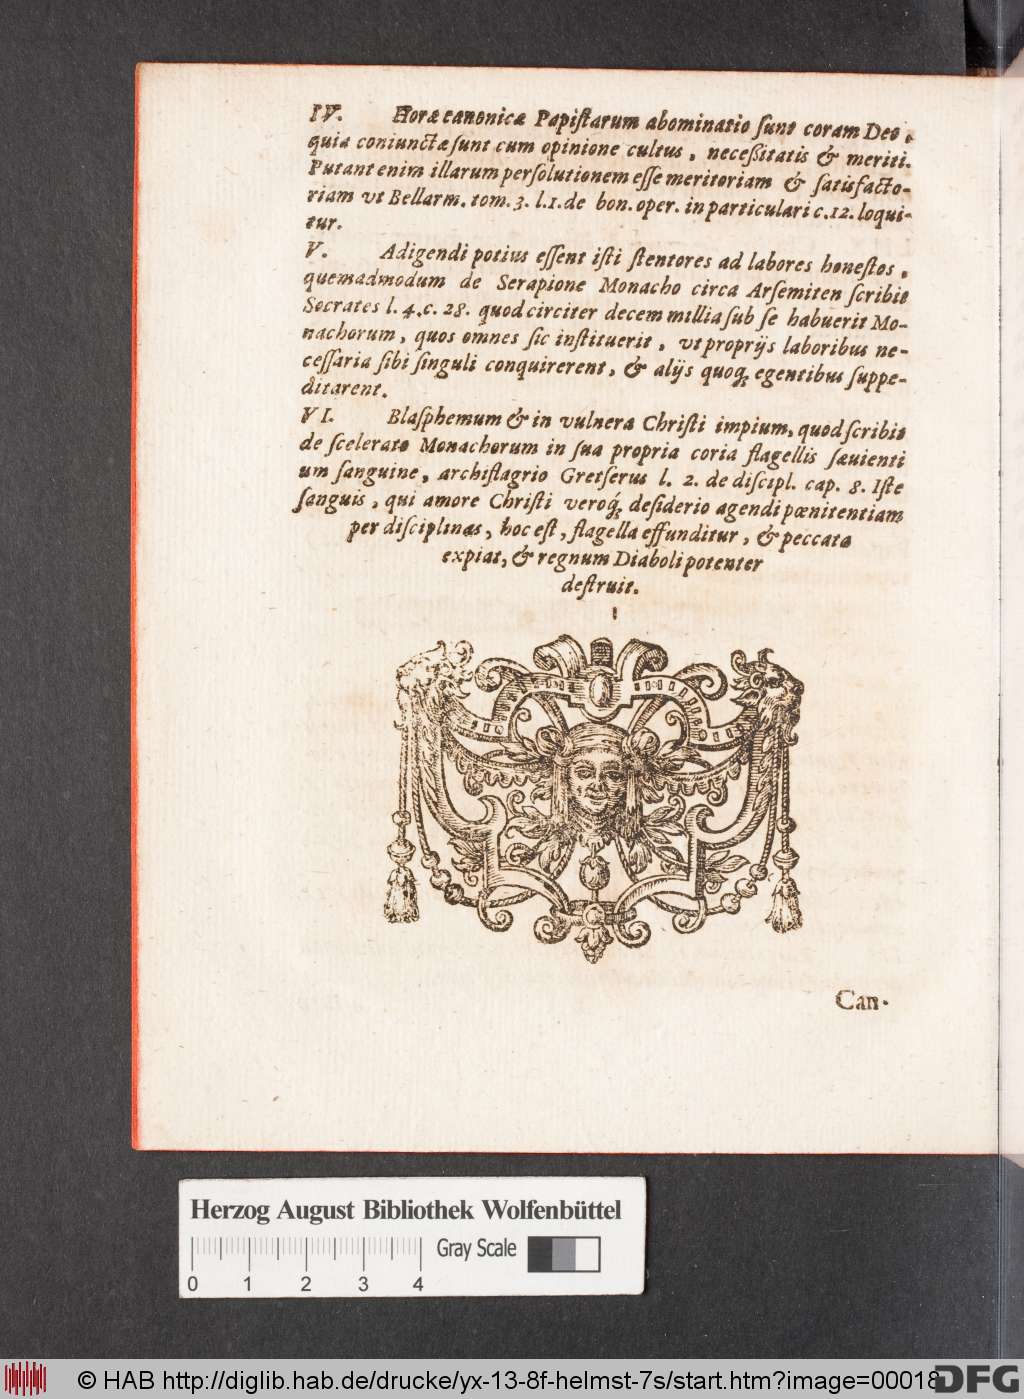 IV. Horæ canonicæ Papiſtarum abominatio ſunt coram Deo,
quia coniunctæ ſunt cum opinione cultus, neceßitatis & meriti.
Putant enim illarum perſolutionem eſſe meritoriam & ſatisfacto-
riam vt Bellarm. tom. 3. l.1. de bon. oper. in particulari c.12. loqui-
tur.
V. Adigendi potius eſſent iſti ſtentores ad labores honeſtos,
quemadmodum de Serapione Monacho circa Arſemiten ſcribit
Socrates l. 4. c. 28. quod circiter decem millia ſub ſe habuerit Mo-
nachorum, quos omnes ſic inſtituerit, vt proprijs laboribus ne-
ceſſaria ſibi ſinguli conquirerent, & alijs quoq; egentibus ſuppe-
ditarent.
VI. Blaſphemum & in vulnera Chriſti impium, quod ſcribit
de ſcelerato Monachorum in ſua propria coria flagellis ſæuienti
um ſanguine, archiflagrio Gretſerus l. 2. de diſcipl. cap. 8. Iſte
ſanguis, qui amore Chriſti veroq; deſiderio agendi pœnitentiam
per diſciplinas, hoc eſt, flagella effunditur, & peccata
expiat, & regnum Diaboli potenter
deſtruit.
Can-
Herzog August Bibliothek Wolfenbüttel
Gray Scale
0 1 2 3 4
© HAB http://diglib.hab.de/drucke/yx-13-8f-helmst-7s/start.htm?image=00018
DFG